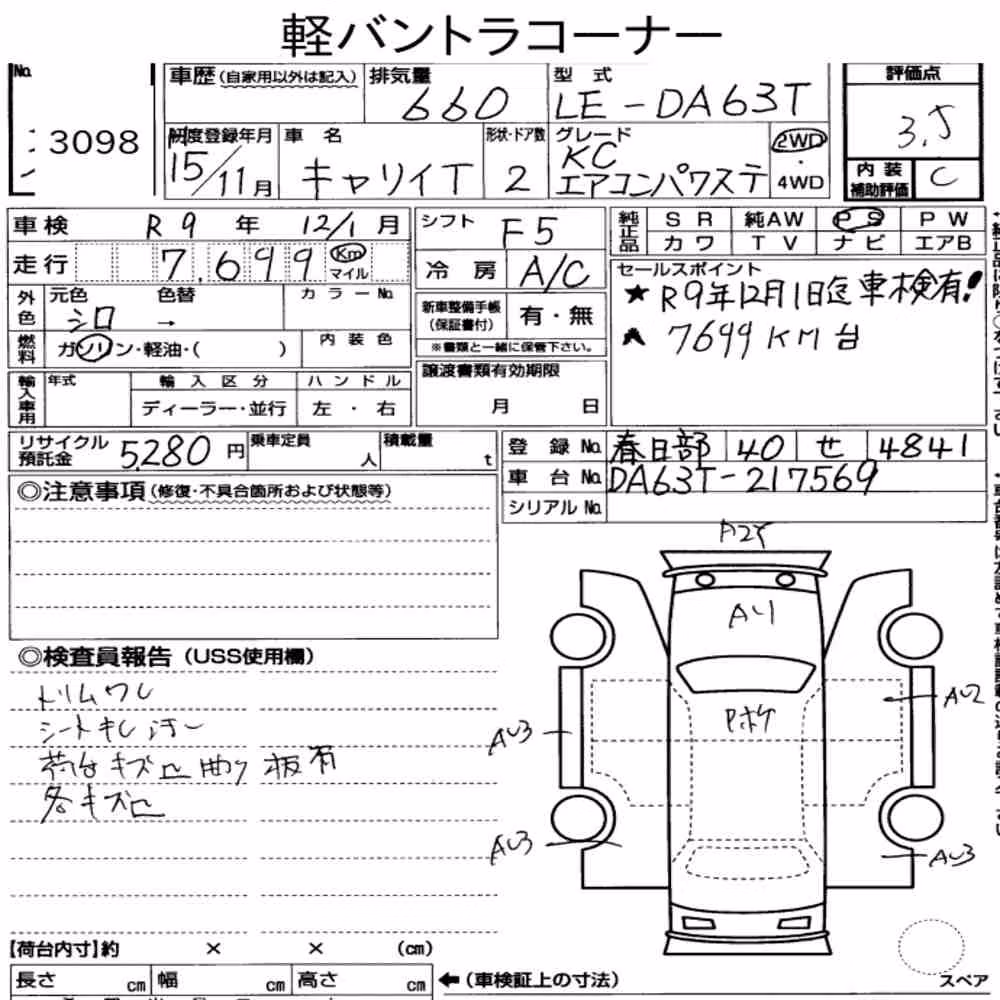 軽バントラコーナー
No. 3098
車歴(自家用以外は記入) 排気量 660 型式 LE-DA63T 評価点 3.5
初度登録年月 15/11月 車名 キャリイT 形状・ドア数 2 グレード KC エアコンパワステ 2WD・4WD 内装補助評価 C
車検 R9年 12/1月
走行 7,699 Km マイル
外色 元色 シロ 色替 → カラーNo.
燃料 ガソリン・軽油・( ) 内装色
輸入車用 年式 輸入区分 ディーラー・並行 ハンドル 左・右
シフト F5
冷房 A/C
新車整備手帳(保証書付) 有・無
※書類と一緒に保管下さい。
譲渡書類有効期限
月 日
純正品 SR 純AW PS PW
カワ TV ナビ エアB
セールスポイント
★R9年12月1日迄車検有!
7699KM台
リサイクル預託金 5,280円 乗車定員 人 積載量 t
登録No. 春日部 40 せ 4841
車台No. DA63T-217569
シリアルNo.
◎注意事項(修復・不具合箇所および状態等)
◎検査員報告(USS使用欄)
トリムワレ
シートキレ 汚レ
荷台キズ凹曲り 板有
各キズ凹
A2Y
AU
Pボケ
AU3
AU2
AU3
AU3
スペア
【荷台内寸】約 × × (cm)
長さ cm 幅 cm 高さ cm ←(車検証上の寸法)